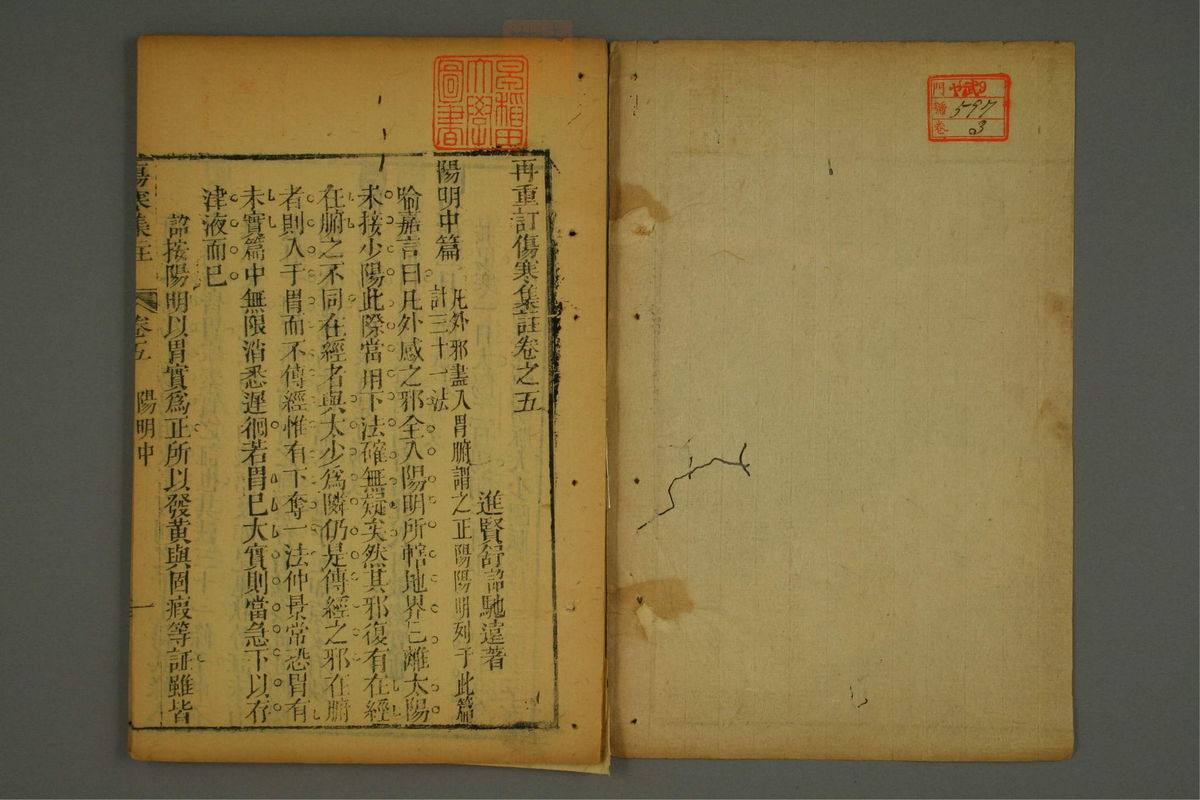 門 ヤ武9
號 597
卷 3
早稲田
大學
圖書
再重訂傷寒集註卷之五
進賢舒詔馳遠著
陽明中篇
凡外邪盡入胃腑謂之正陽陽明列于此篇
計三十一法
喻嘉言曰凡外感之邪全入陽明所轄地界已離太陽
未接少陽此際當用下法確無疑矣然其邪復有在經
在腑之不同在經者與太少為隣仍是傳經之邪在腑
者則入于胃而不傳經惟有下奪一法仲景常恐胃有
未實篇中無限消悉遲徊若胃已大實則當急下以存
津液而已
詔按陽明以胃實為正所以發黃與固瘕等証雖皆
傷寒集註 卷五 陽明中 一